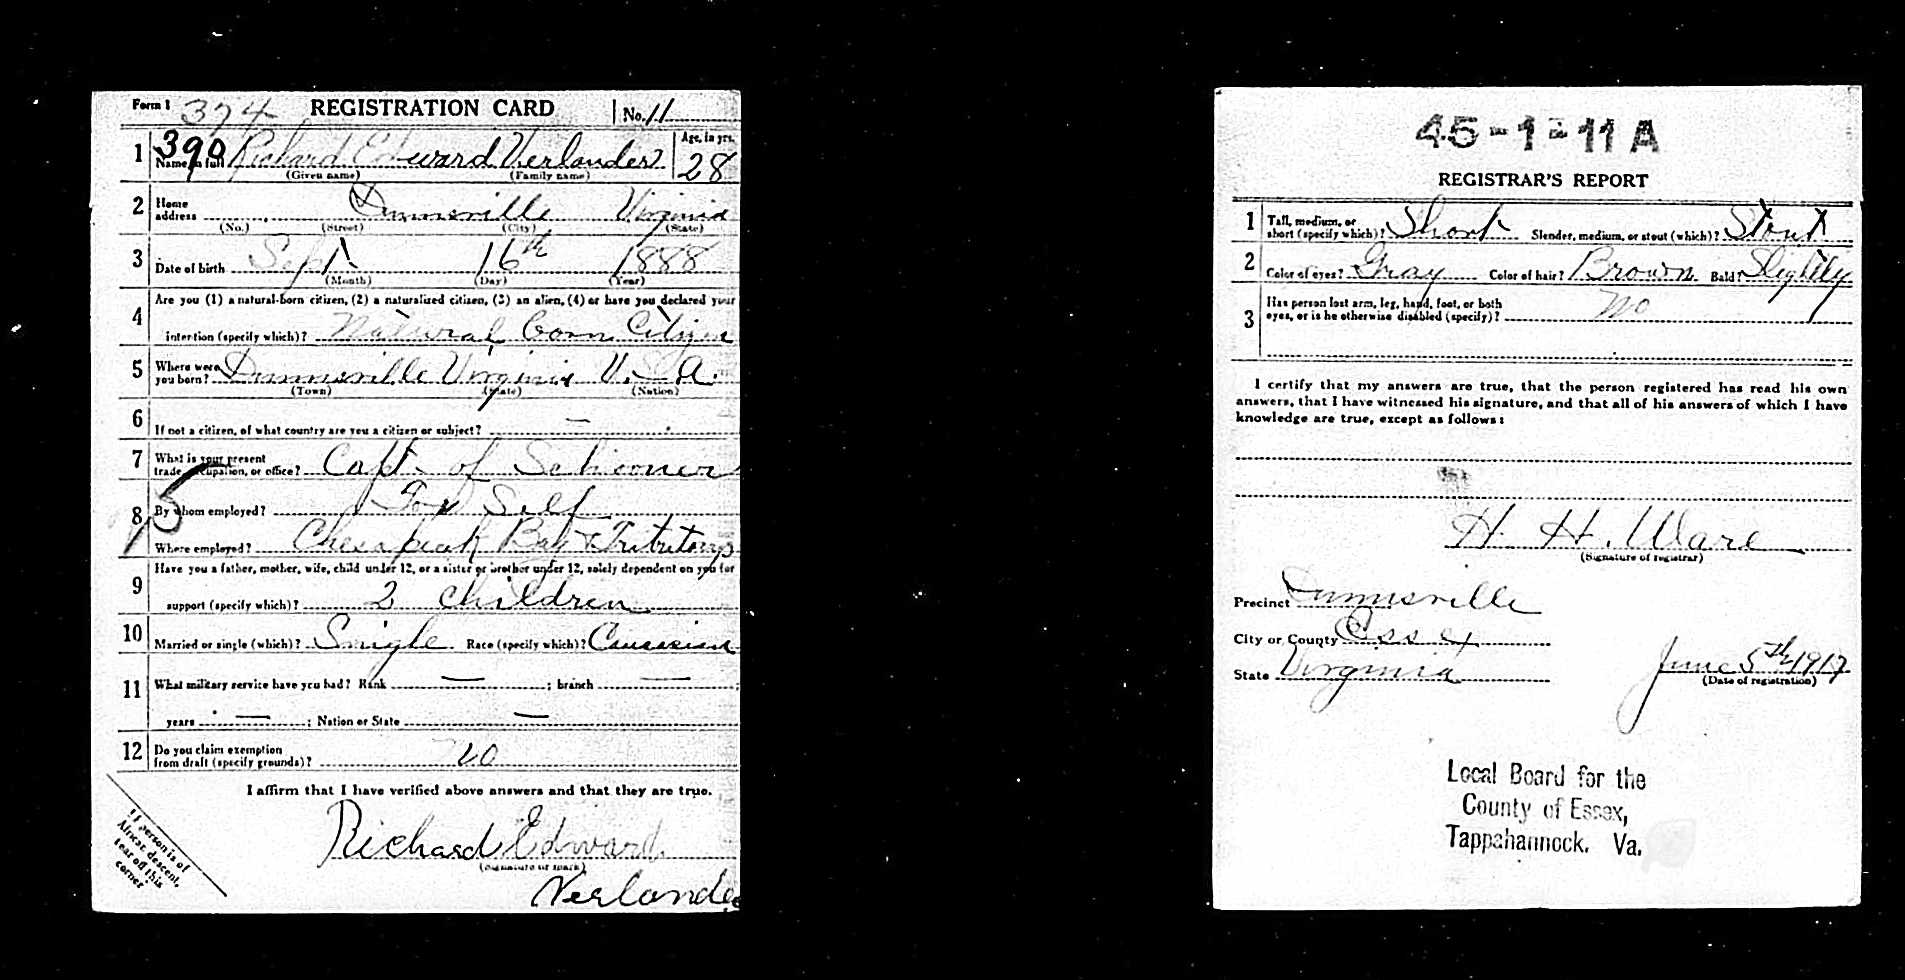 Form 1 374 REGISTRATION CARD No. 11
1 390 Name in full Richard Edward Verlander Age, in yrs. 28
(Given name) (Family name)
2 Home address Dunnsville Virginia
(No.) (Street) (City) (State)
3 Date of birth Sept 16th 1888
(Month) (Day) (Year)
4 Are you (1) a natural-born citizen, (2) a naturalized citizen, (3) an alien, (4) or have you declared your
intention (specify which)? Natural born Citizen
5 Where were you born? Dunnsville Virginia U.S.A.
(Town) (State) (Nation)
6 If not a citizen, of what country are you a citizen or subject? —
7 What is your present trade, occupation, or office? Capt. of Schooner
8 By whom employed? For Self
Where employed? Chesapeak Bay & Tributarys
9 Have you a father, mother, wife, child under 12, or a sister or brother under 12, solely dependent on you for
support (specify which)? 2 children
10 Married or single (which)? Single Race (specify which)? Caucasian
11 What military service have you had? Rank — ; branch — ;
years — ; Nation or State —
12 Do you claim exemption
from draft (specify grounds)? no
I affirm that I have verified above answers and that they are true.
Richard Edward
(Signature or mark)
Verlander
If person is of
African descent,
tear off this
corner
45-1-11 A
REGISTRAR'S REPORT
1 Tall, medium, or
short (specify which)? Short Slender, medium, or stout (which)? Stout
2 Color of eyes? Gray Color of hair? Brown Bald? Slightly
3 Has person lost arm, leg, hand, foot, or both
eyes, or is he otherwise disabled (specify)? No
I certify that my answers are true, that the person registered has read his own
answers, that I have witnessed his signature, and that all of his answers of which I have
knowledge are true, except as follows:
H. H. Ware
(Signature of registrar)
Precinct Dunnsville
City or County Essex
State Virginia June 5th 1917
(Date of registration)
Local Board for the
County of Essex,
Tappahannock. Va.